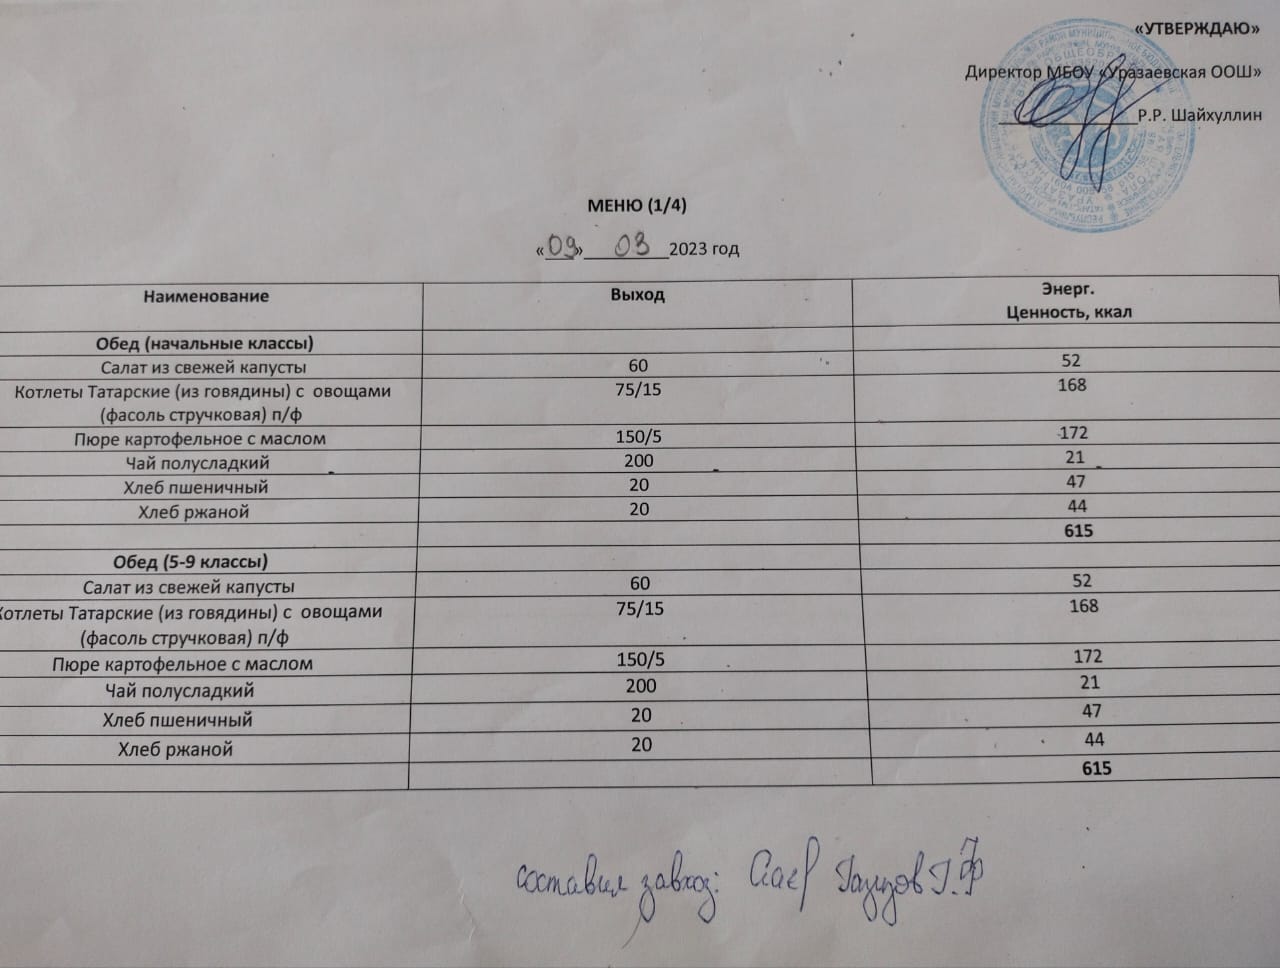 «УТВЕРЖДАЮ»
Директор МБОУ «Уразаевская ООШ»
Р.Р. Шайхуллин
МЕНЮ (1/4)
«09» 03 2023 год
Наименование Выход Энерг.
Ценность, ккал
Обед (начальные классы)
Салат из свежей капусты 60 52
Котлеты Татарские (из говядины) с овощами 75/15 168
(фасоль стручковая) п/ф
Пюре картофельное с маслом 150/5 172
Чай полусладкий 200 21
Хлеб пшеничный 20 47
Хлеб ржаной 20 44
615
Обед (5-9 классы)
Салат из свежей капусты 60 52
Котлеты Татарские (из говядины) с овощами 75/15 168
(фасоль стручковая) п/ф
Пюре картофельное с маслом 150/5 172
Чай полусладкий 200 21
Хлеб пшеничный 20 47
Хлеб ржаной 20 44
615
составил завхоз: Газизов Г.Ф